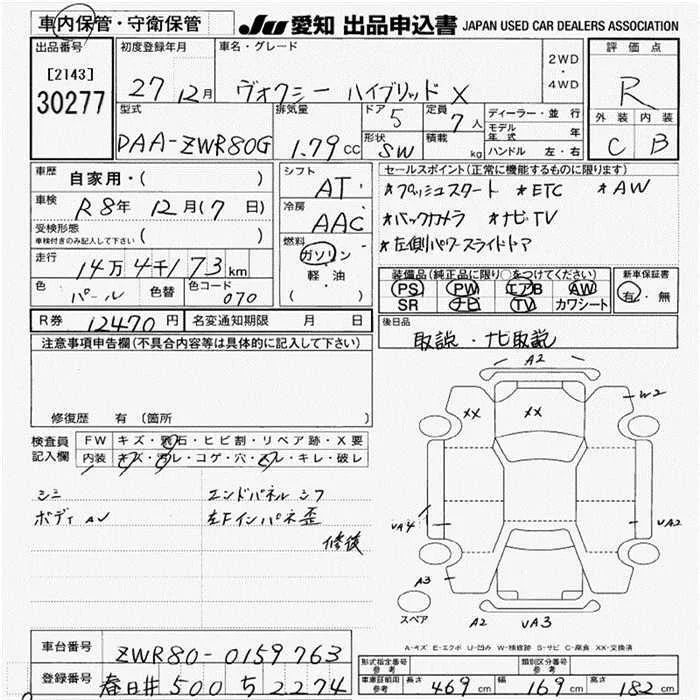 車内保管・守衛保管
JU 愛知 出品申込書 JAPAN USED CAR DEALERS ASSOCIATION
出品番号 [2143] 30277
初度登録年月 27 12月
車名・グレード ヴォクシー ハイブリッド X
2WD・4WD
評価点 R
外装 内装
C B
型式 DAA-ZWR80G
排気量 1.79 CC
ドア 5
形状 SW
定員 7人
積載 kg
ディーラー・並行
モデル年式 年
ハンドル 左・右
車歴 自家用・( )
車検 R8年 12月(7日)
受検形態 ( )
車検付きのみ記入して下さい
走行 14万4千173km
色 パール 色替 色コード 070
シフト AT
冷房 AAC
燃料 ガソリン
軽・油
( )
セールスポイント(正常に機能するものに限ります)
*プッシュスタート *ETC *AW
*バックカメラ *ナビTV
*左側パワースライドドア
装備品(純正品に限り○をつけてください)
PS PW エアB AW
SR ナビ TV カワシート
新車保証書
有・無
R券 12470円 名変通知期限 月 日
後日品
取説・ナビ取説
注意事項申告欄(不具合内容等は具体的に記入して下さい)
修復歴 有 (箇所
検査員記入欄
FW キズ・飛石・ヒビ割・リペア跡・X要
内装 キズ・汚レ・コゲ・穴・スレ・キレ・破レ
シミ エンドパネル シワ
ボディ AU 左Fインパネ歪
修後
A2
W2
XX XX
UA4 UA2
A3
スペア
A2 UA3
A-キズ E-エクボ U-凹み W-補修跡 S-サビ C-腐食 XX-交換済
車台番号 ZWR80-0159763
登録番号 春日井 500 ち 2274
形式指定番号 参考 類別区分番号 参考
車庫証明用 参考 長さ 469cm 幅 169cm 高さ 182cm